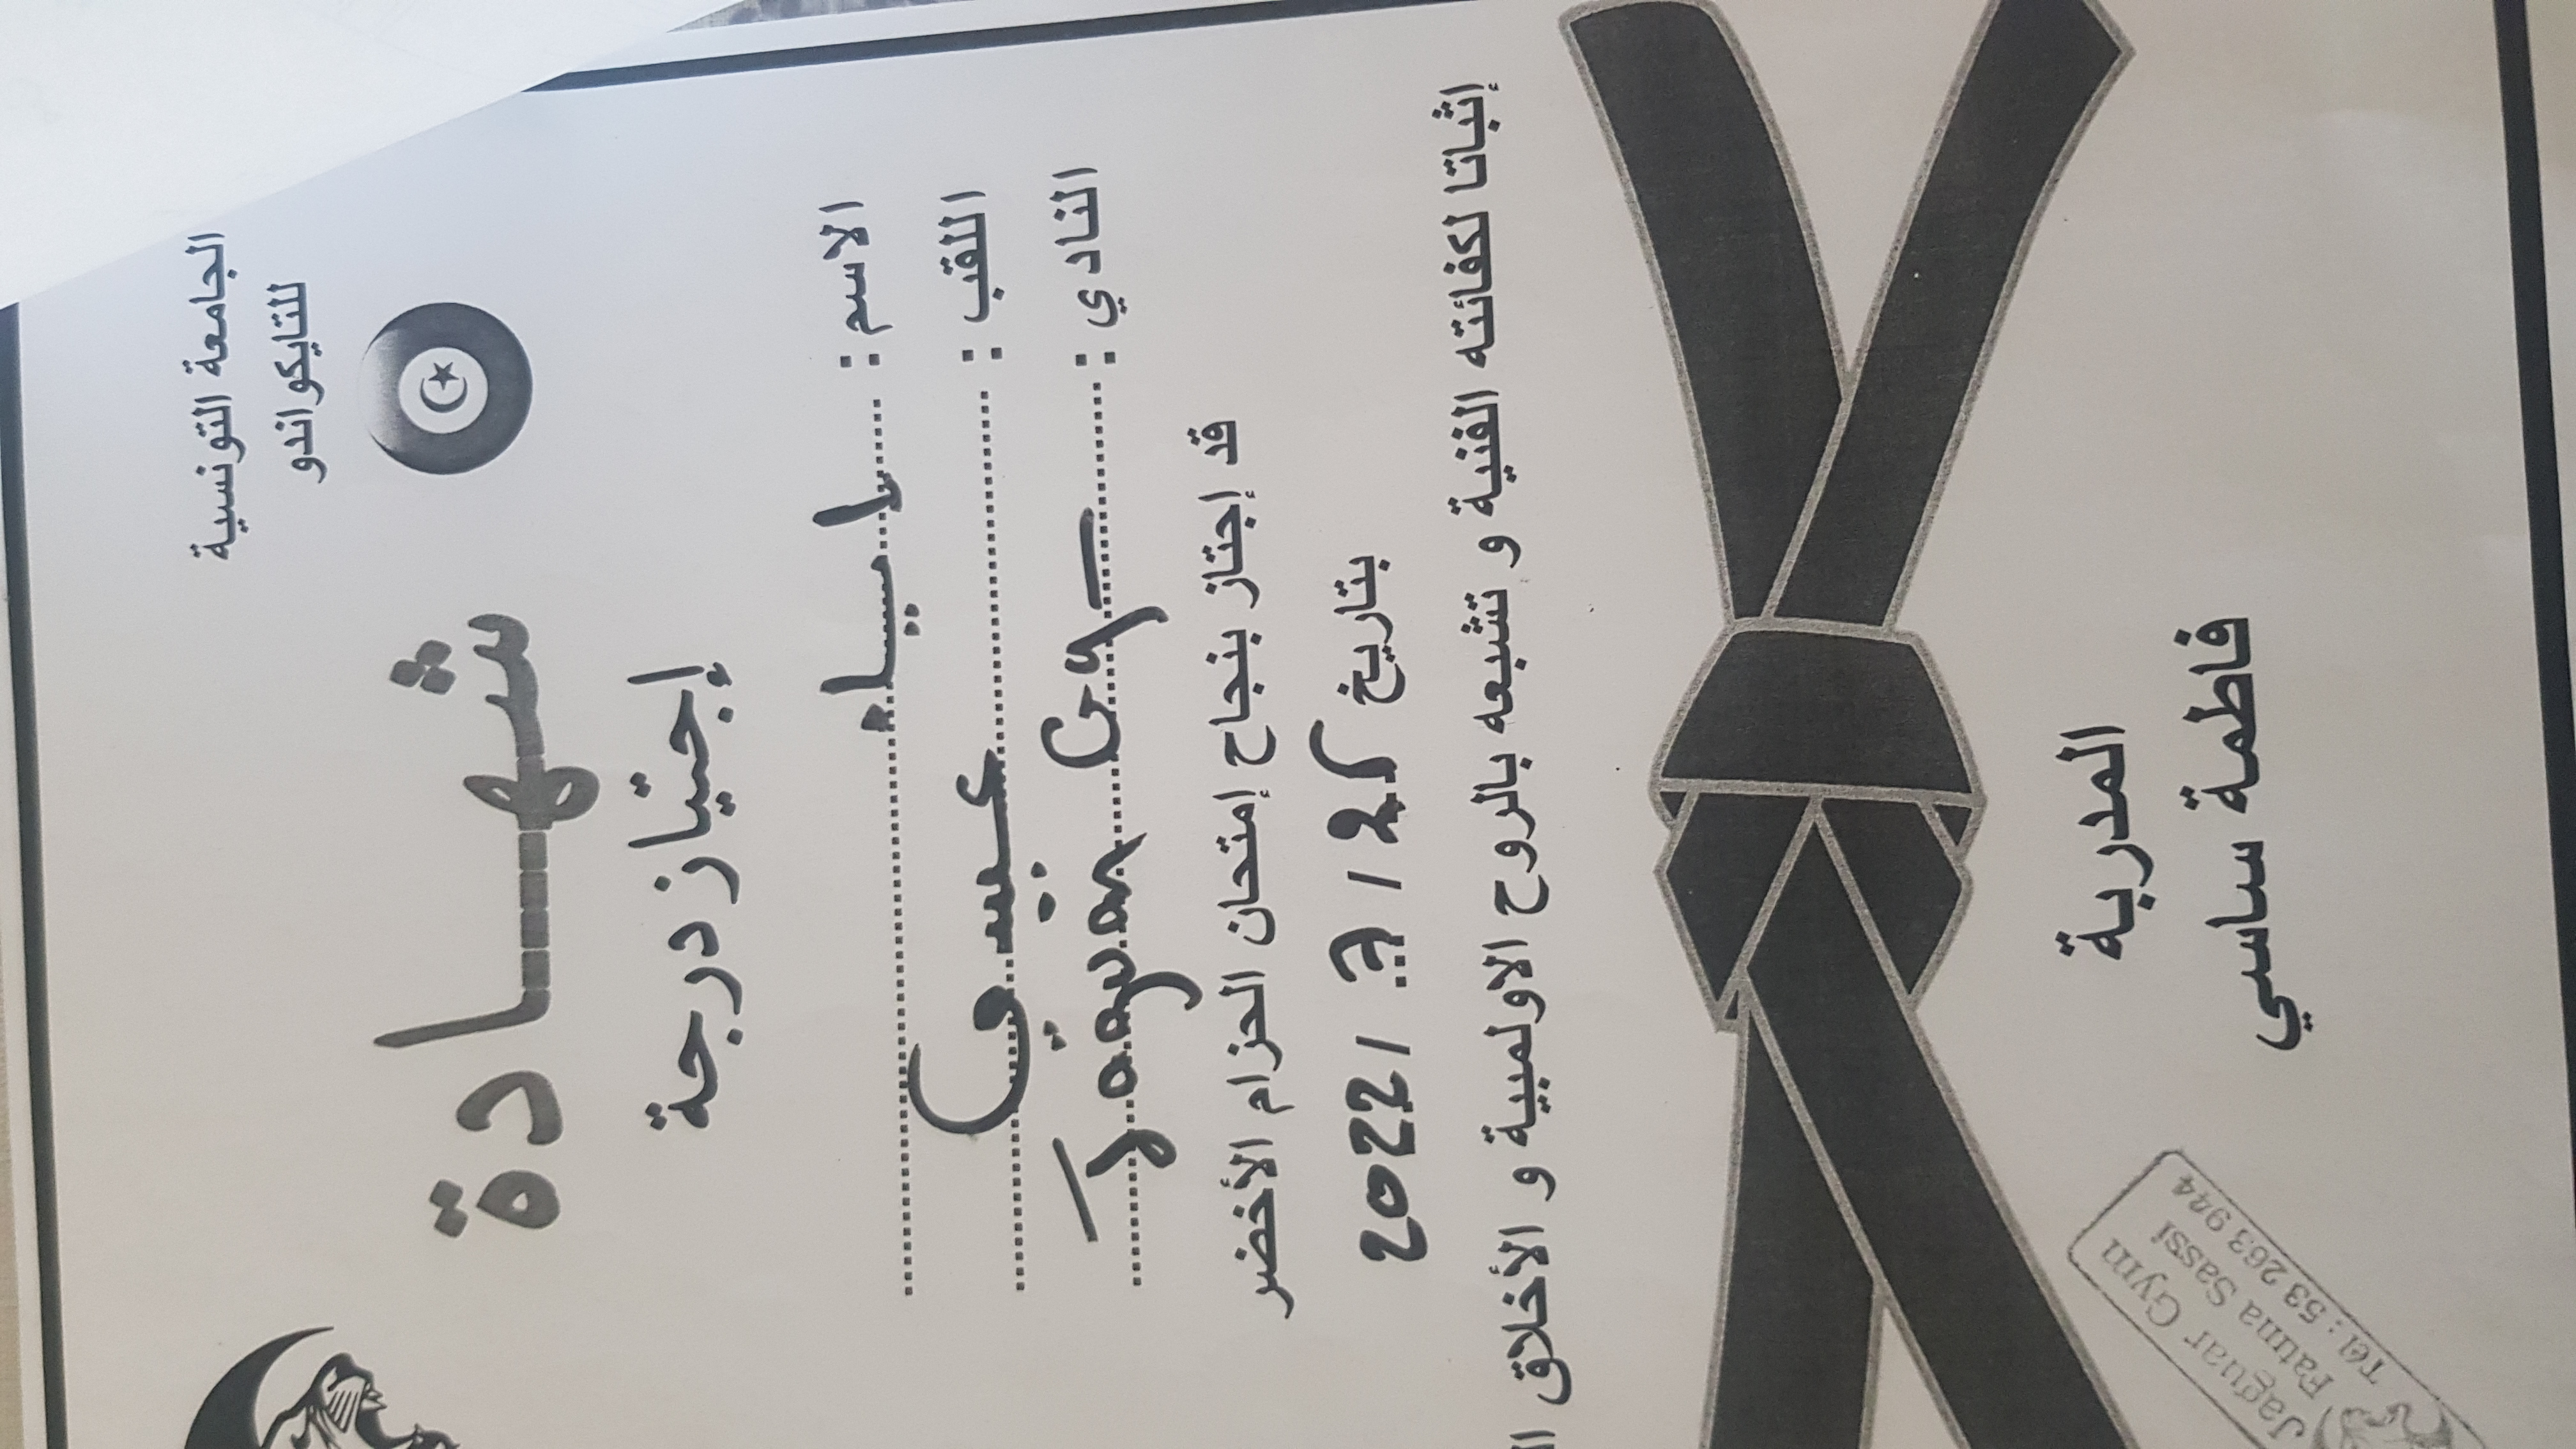 الجامعة التونسية
للتايكواندو
شهــــادة
إجتياز درجة
الاسم :
اللقب :
النادي : Jaguar Gym
قد إجتاز بنجاح إمتحان الحزام الأخضر
بتاريخ 25 / 7 / 2022
إثباتا لكفائته الفنية و تشبعه بالروح الاولمبية و الأخلاق
المدربة
فاطمة ساسي
Jaguar Gym
Fatma Sassi
Tél : 53 263 944